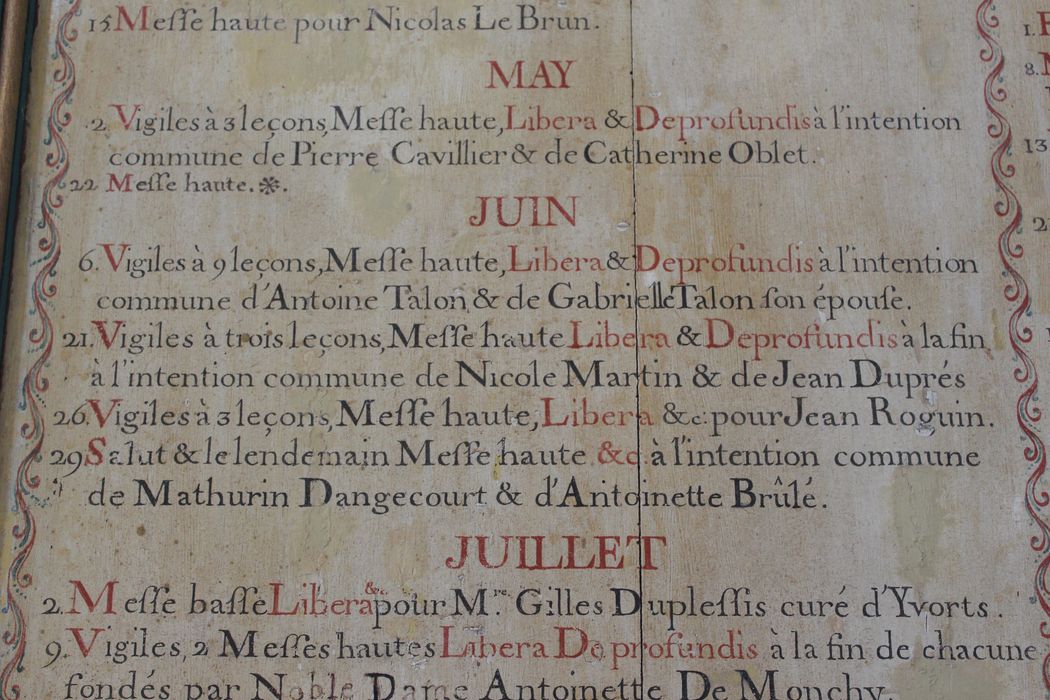 15. Meſſe haute pour Nicolas Le Brun.
MAY
2. Vigiles à 3 leçons, Meſſe haute, Libera & Deprofundis à l'intention
commune de Pierre Cavillier & de Catherine Oblet.
22 Meſſe haute. ✻.
JUIN
6. Vigiles à 9 leçons, Meſſe haute, Libera & Deprofundis à l'intention
commune d'Antoine Talon, & de Gabrielle Talon ſon épouſe.
21. Vigiles à trois leçons, Meſſe haute Libera & Deprofundis à la fin
à l'intention commune de Nicole Martin & de Jean Duprés
26. Vigiles à 3 leçons, Meſſe haute, Libera &c. pour Jean Roguin.
29 Salut & le lendemain Meſſe haute &c. à l'intention commune
de Mathurin Dangecourt & d'Antoinette Brûlé.
JUILLET
2. Meſſe baſſe Libera &c. pour Mre. Gilles Dupleſſis curé d'Yvorts.
9. Vigiles, 2 Meſſes hautes Libera De profundis à la fin de chacune
fondés par Noble Dame Antoinette De Monchy.
1.
8.
13
2